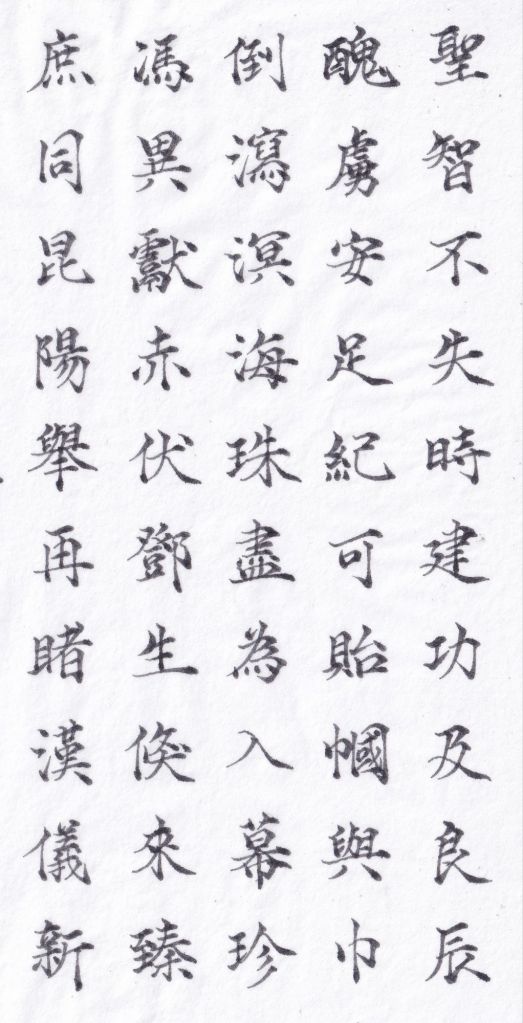 聖智不失時建功及良辰
醜虜安足紀可貽幗與巾
倒瀉溟海珠盡為入幕珍
馮異獻赤伏鄧生倐來臻
庶同昆陽舉再睹漢儀新